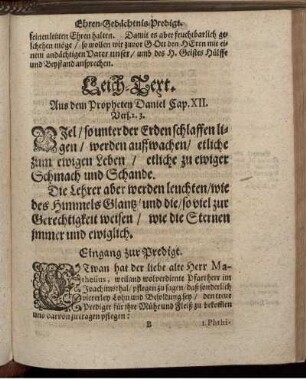 Ehren-Gedächtnis-Predigt.
seinen letzten Ehren halten. Damit es aber fruchtbarlich ge-
schehen möge / so wollen wir zuvor GOtt den HErrn mit ei-
nem andächtigen Vater unser / umb des H. Geistes Hülffe
und Beystand ansprechen.
Leich-Text.
Aus dem Propheten Daniel Cap. XII.
Vers. 2. 3.
VJel / so unter der Erden schlaffen li-
gen / werden auffwachen / etliche
zum ewigen Leben / etliche zu ewiger
Schmach und Schande.
Die Lehrer aber werden leuchten / wie
des Himmels Glantz / und die / so viel zur
Gerechtigkeit weisen / wie die Sternen
jmmer und ewiglich.
Eingang zur Predigt.
ETwan hat der liebe alte Herr Ma-
thesius, weiland wolverdienter Pfarrherr im
Joachimsthal / pflegen zu sagen / daß sonderlich
viererley Lohn und Besoldung sey / den treue
Prediger für ihre Mühe und Fleiß zu bekom̃en
und darvon zu tragen pflegen :
B
1. Pluthi-